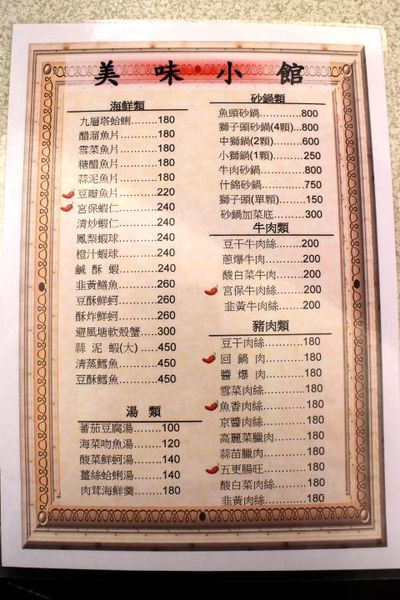 美味小館
海鮮類
九層塔蛤蜊........180
醋溜魚片..........180
雪菜魚片..........180
糖醋魚片..........180
蒜泥魚片..........180
豆瓣魚片..........220
宮保蝦仁..........240
清炒蝦仁..........240
鳳梨蝦球..........240
橙汁蝦球..........240
鹹酥蝦..........240
韭黃鱔魚..........260
豆酥鮮蚵..........260
酥炸鮮蚵..........260
避風塘軟殼蟹....300
蒜泥蝦(大)....450
清蒸鱈魚..........450
豆酥鱈魚..........450
湯類
蕃茄豆腐湯........100
海菜吻魚湯........120
酸菜鮮蚵湯........140
薑絲蛤蜊湯........140
肉茸海鮮羹........180
砂鍋類
魚頭砂鍋...........800
獅子頭砂鍋(4顆)...800
中獅鍋(2顆).......600
小獅鍋(1顆).......250
牛肉砂鍋...........800
什錦砂鍋...........750
獅子頭(單顆).......150
砂鍋加菜底........300
牛肉類
豆干牛肉絲........200
蔥爆牛肉...........200
酸白菜牛肉........200
宮保牛肉絲........200
韭黃牛肉絲........200
豬肉類
豆干肉絲...........180
回鍋肉...........180
醬爆肉...........180
雪菜肉絲...........180
魚香肉絲...........180
京醬肉絲...........180
高麗菜臘肉........180
蒜苗臘肉...........180
五更腸旺...........180
酸白菜肉絲........180
韭黃肉絲...........180